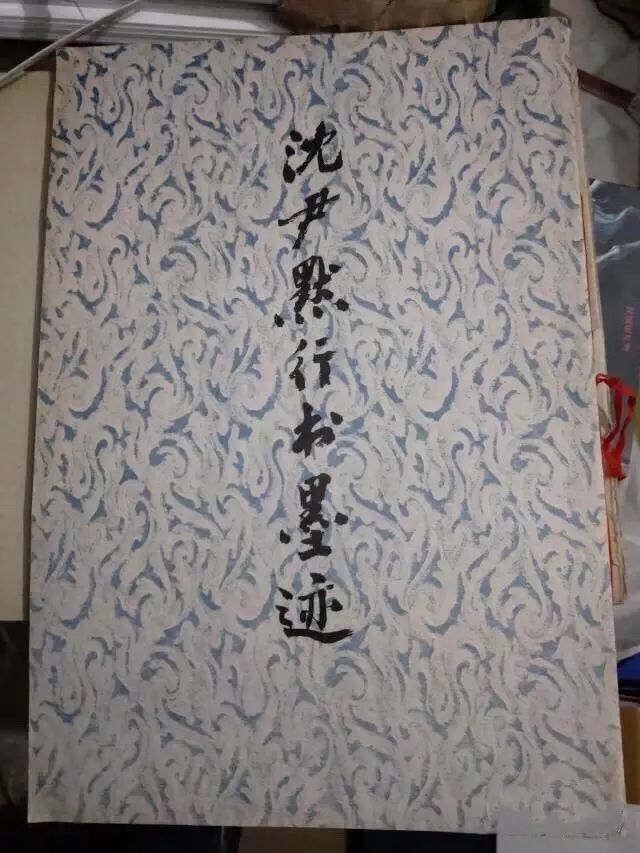 沈尹默行书墨迹